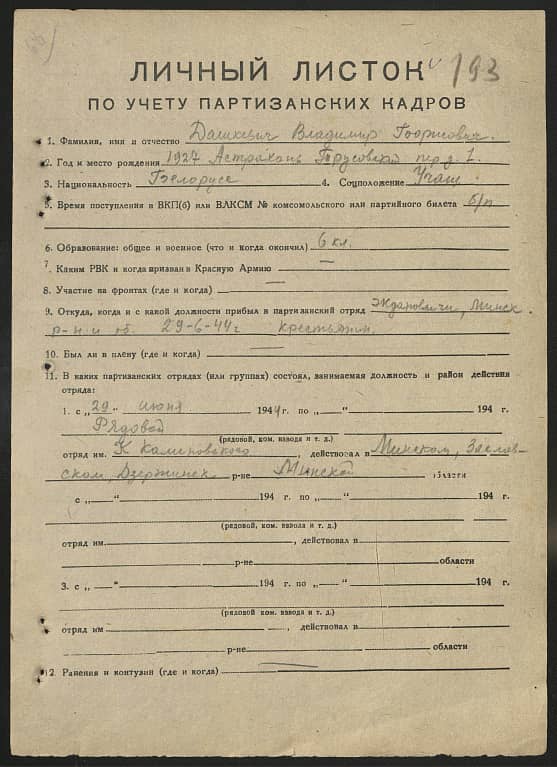 193
ЛИЧНЫЙ ЛИСТОК
ПО УЧЕТУ ПАРТИЗАНСКИХ КАДРОВ
1. Фамилия, имя и отчество Дашкевич Владимир
2. Год и место рождения 1927 Астрахань
3. Национальность Белорусс 4. Соцположение Учащ.
5. Время поступления в ВКП(б) или ВЛКСМ № комсомольского или партийного билета б/п
6. Образование: общее и военное (что и когда окончил) 6 кл.
7. Каким РВК и когда призван в Красную Армию —
8. Участие на фронтах (где и когда) —
9. Откуда, когда и с какой должности прибыл в партизанский отряд Ждановичи, Минск.
р-н и об. 29-6-44 г крестьянин.
10. Был ли в плену (где и когда) —
11. В каких партизанских отрядах (или группах) состоял, занимаемая должность и район действия
отряда:
1. с „29" июня 1944 г. по „—" 194 г.
Рядовой
(рядовой, ком. взвода и т. д.)
отряд им. К Калиновского, действовал в Минском, Заслав-
ском, Дзержинск р-не Минской области
с „—" 194 г. по „—" 194 г.
(рядовой, ком. взвода и т. д.)
отряд им. , действовал в
р-не области
3. с „—" 194 г. по „—" 194 г.
(рядовой, ком. взвода и т. д.)
отряд им , действовал в
р-не области
12. Ранения и контузии (где и когда) —